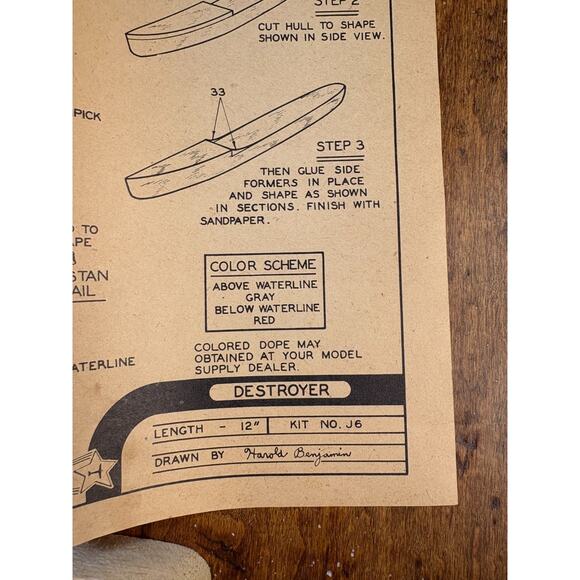 STEP 2
CUT HULL TO SHAPE
SHOWN IN SIDE VIEW.
PICK
33
STEP 3
THEN GLUE SIDE
FORMERS IN PLACE
AND SHAPE AS SHOWN
IN SECTIONS. FINISH WITH
SANDPAPER.
TO
STAN
AIL
COLOR SCHEME
ABOVE WATERLINE
GRAY
BELOW WATERLINE
RED
COLORED DOPE MAY
OBTAINED AT YOUR MODEL
SUPPLY DEALER.
ATERLINE
DESTROYER
LENGTH - 12" KIT NO. J6
DRAWN BY Harold Benjamin
H